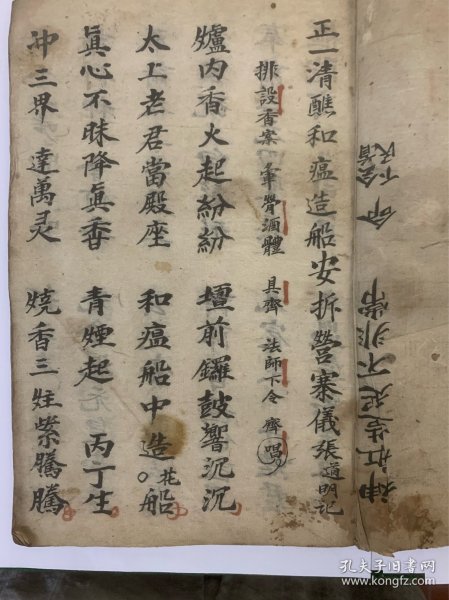 正一清醮和瘟造船安折營寨儀張道明記
排設香案 軍 酒醴 具齊 法師下令 齊唱
爐内香火起紛紛 壇前鑼鼓響沉沉
太上老君當殿座 和瘟船中造花船
真心不昧降真香 青煙起 丙丁生
冲三界 達萬灵 燒香三炷紫騰騰
孔夫子旧书网
www.kongfz.com